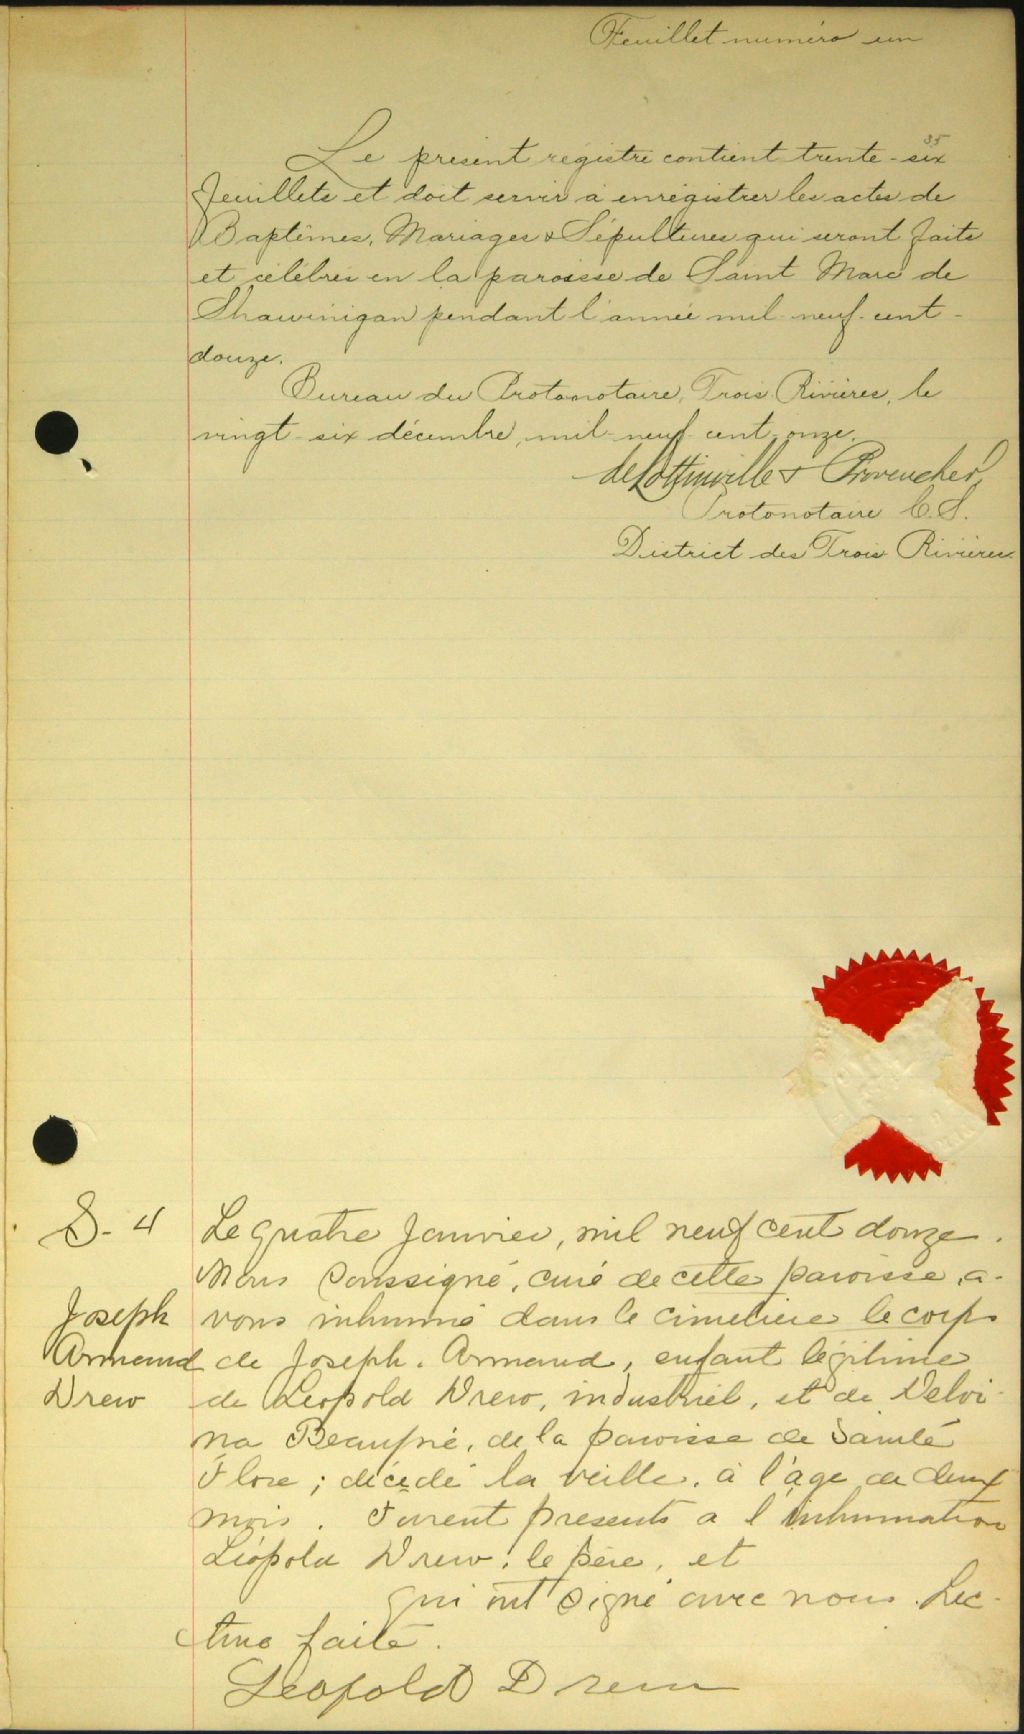 Feuillet numéro un
35
Le present registre contient trente-six
feuillets et doit servir a enregistrer les actes de
Baptêmes, Mariages & Sépultures qui seront faits
et célébrés en la paroisse de Saint Marc de
Shawinigan pendant l'année mil-neuf-cent-
douze.
Bureau du Protonotaire, Trois Rivières, le
vingt-six décembre, mil-neuf-cent-onze.
deLottinville & Provencher,
Protonotaire C.S.
District des Trois Rivières
S-4
Joseph
Armand
Drew
Le quatre Janvier, mil neuf cent douze.
Nous soussigné, curé de cette paroisse, a-
vons inhumé dans le cimetière le corps
de Joseph. Armand, enfant légitime
de Léopold Drew, industriel, et de Delvi-
na Beaupré, de la paroisse de Sainte
Flore; décédé la veille, à l'âge de deux
mois. Furent presents a l'inhumation
Léopold Drew, le père, et
qui ont signé avec nous. Lec-
ture faite.
Leopold Drew